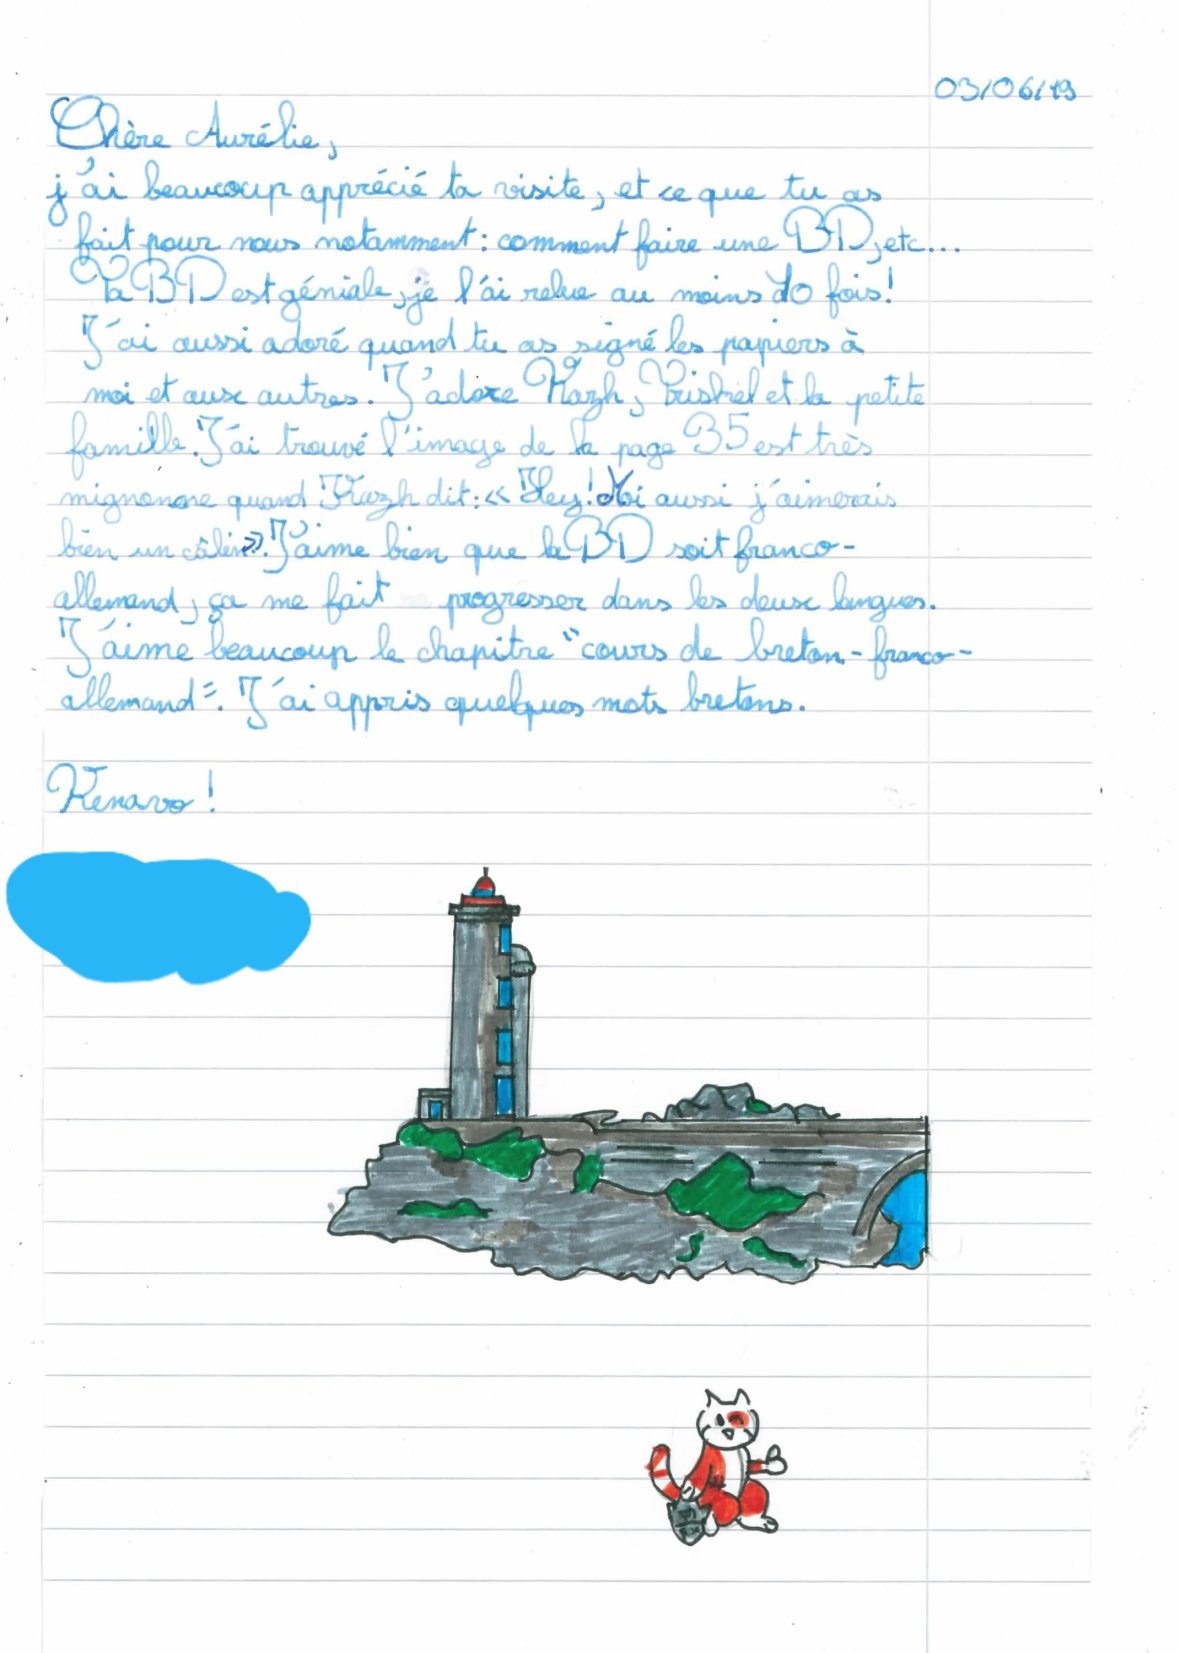 03/06/19
Chère Aurélie,
j'ai beaucoup apprécié ta visite, et ce que tu as
fait pour nous notamment : comment faire une BD, etc...
Ta BD est géniale, je l'ai relue au moins 10 fois !
J'ai aussi adoré quand tu as signé les papiers à
moi et aux autres. J'adore Kazh, et la petite
famille. J'ai trouvé l'image de la page 35 est très
mignonne quand Kazh dit : « Hey ! Moi aussi j'aimerais
bien un câlin ». J'aime bien que la BD soit franco-
allemand, ça me fait progresser dans les deux langues.
J'aime beaucoup le chapitre "cours de breton-franco-
allemand". J'ai appris quelques mots bretons.
Kenavo !